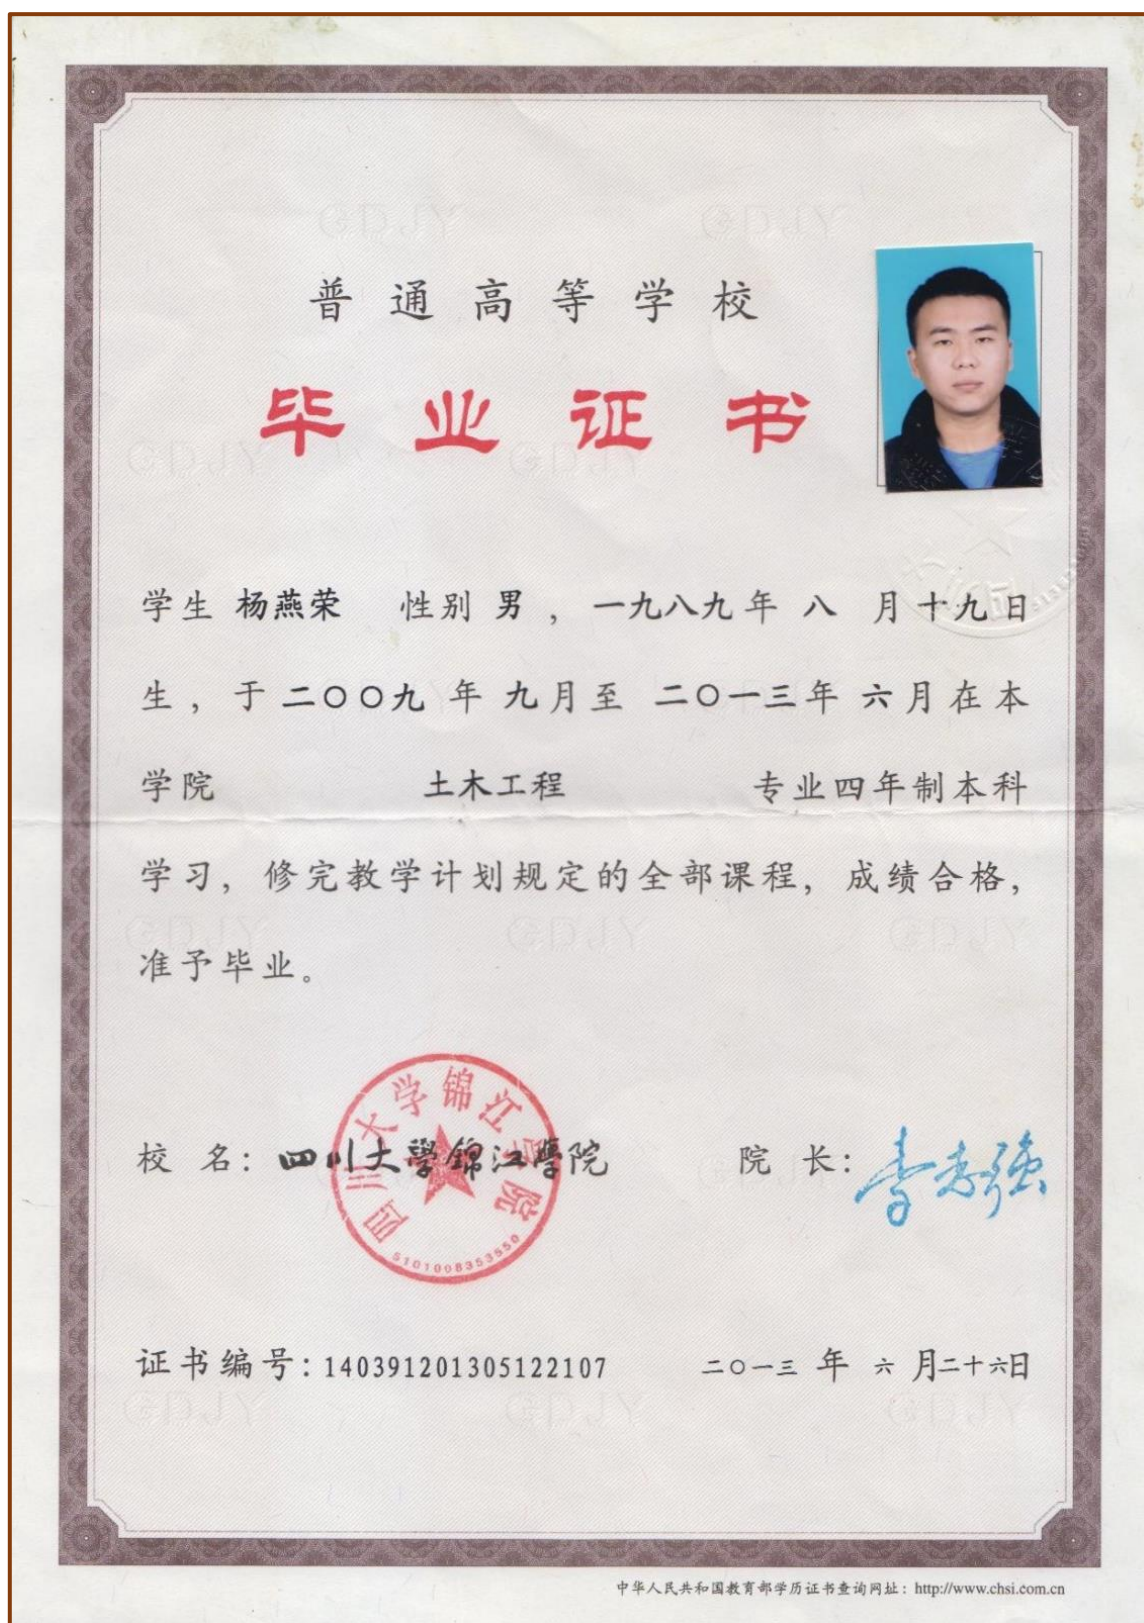 普通高等学校
毕业证书
学生 杨燕荣 性别 男 , 一九八九年 八 月十九日
生 , 于 二〇〇九 年 九月至 二〇一三年 六月在本
学院 土木工程 专业四年制本科
学习, 修完教学计划规定的全部课程, 成绩合格,
准予毕业。
四川大学锦江学院
校 名: 四川大學錦江學院 院 长:
5101008353550
证书编号: 140391201305122107 二〇一三 年 六 月二十六日
中华人民共和国教育部学历证书查询网址: http://www.chsi.com.cn